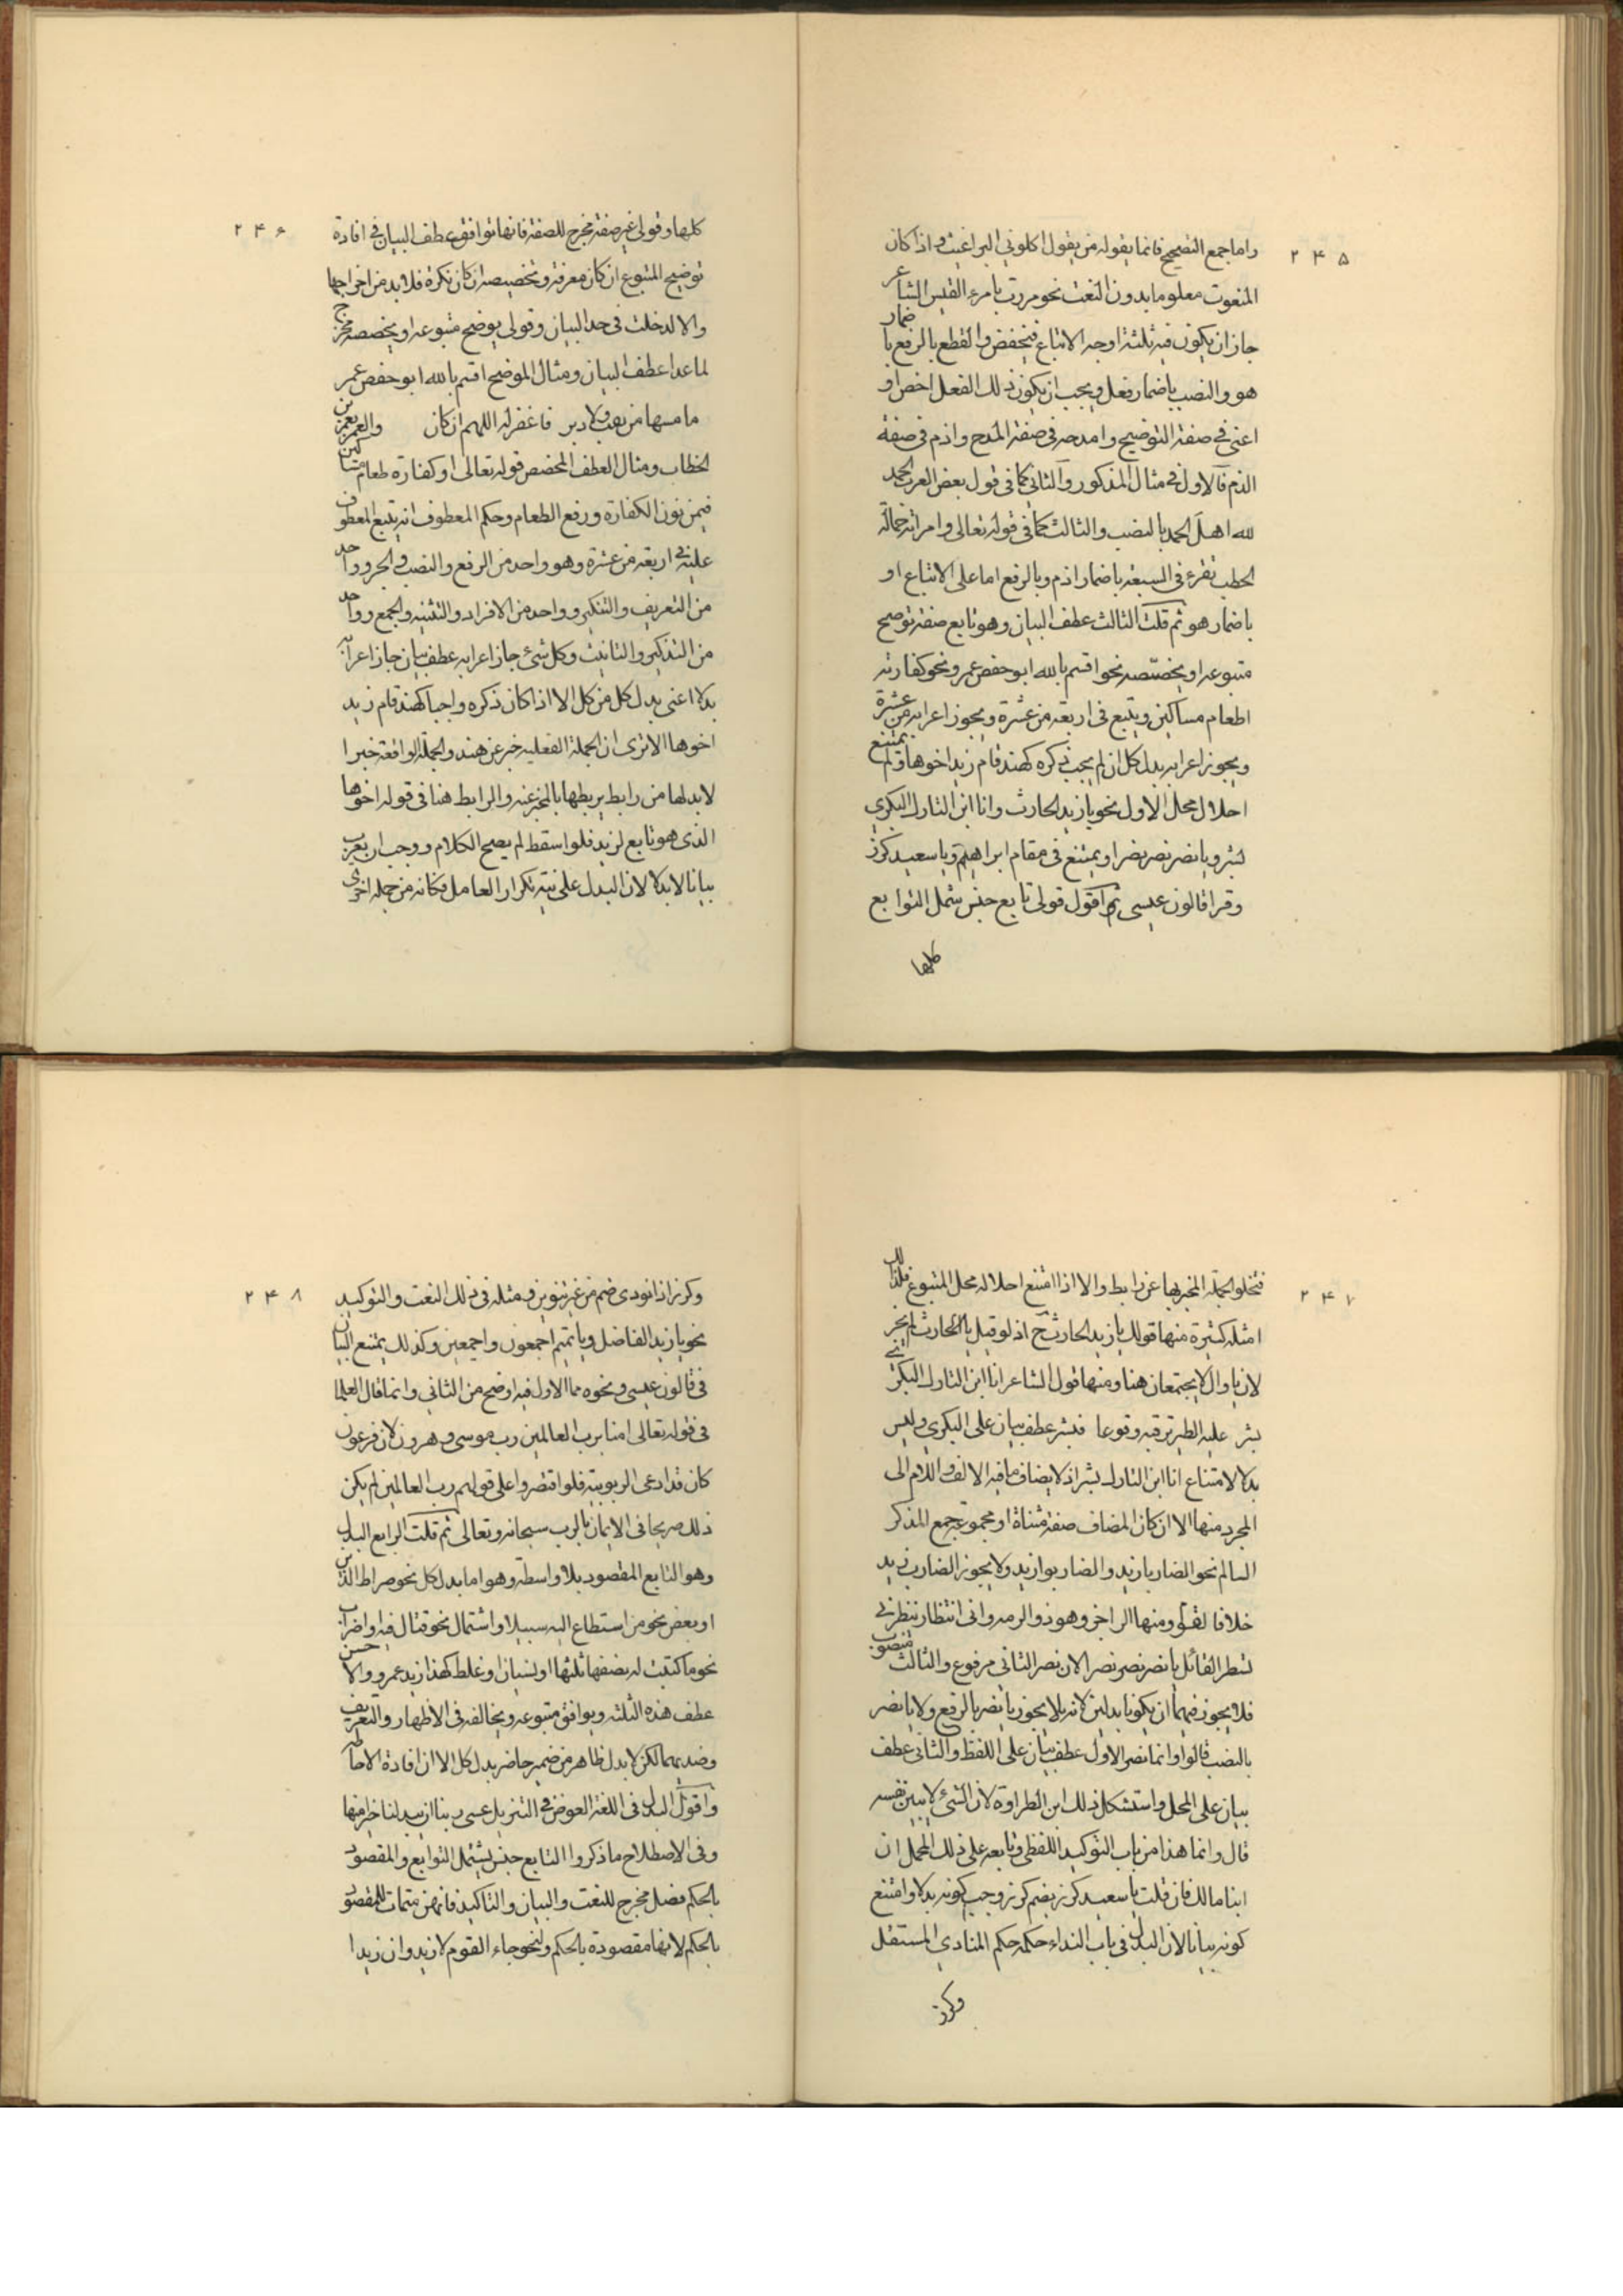 ۲۴۵
واما جمع التصحيح فانما يقوله من يقول اكلوني البراغيث واذا كان
المنعوت معلوما بدون النعت نحو مررت بامرء القيس الشاعر
جاز ان يكون فيه ثلثة اوجه الاتباع فيخفض والقطع بالرفع باضمار
هو والنصب باضمار فعل ويجب ان يكون ذلك الفعل اخص او
اعنى في صفة التوضيح وامدح في صفة المدح واذم فى صفة
الذم فالاول فى مثال المذكور والثانى كما فى قول بعض العرب الحمد
لله اهل الحمد بالنصب والثالث كما فى قوله تعالى وامراته حمالة
الحطب تقرء فى السبعة باضمار اذم وبالرفع اما على الاتباع او
باضمار هو ثم قلت الثالث عطف البيان وهو تابع صفة توضيح
متبوعه او يخصّصه نحو اقسم بالله ابو حفص عمر ونحو كفارته
اطعام مساكين ويتبع فى اربعة من عشرة ويجوز اعرابه من عشرة
ويجوز اعرابه بدل كل ان لم يجب ذكره كهند قام زيد اخوها ولم يمتنع
احلال محل الاول نحو يا زيد الحارث وانا ابن التارك البكري
بشر ويا نصر نصر نصرا ويمتنع فى مقام ابراهيم ويا سعيد كرز
وقرا قالون عيسى ثم اقول قولى تابع جنس شمل التوابع
كلها
۲۴۶
كلها وقولى غير صفة مخرج للصفة فانها توافق عطف البيان فى افادة
توضيح المتبوع ان كان معرفة وتخصيصه ان كان نكرة فلا بد من اخراجها
والا لدخلت فى حد البيان وقولى يوضح متبوعه او يخصصه مخرج
لما عدا عطف البيان ومثال الموضح اقسم بالله ابو حفص عمر
ما مسها من نقب ولا دبر فاغفر له اللهم ان كان والعمر بعمر بن
الخطاب ومثال العطف المخصص قوله تعالى او كفارة طعام مساكين
فيمن نون الكفارة ورفع الطعام وحكم المعطوف انه يتبع المعطوف
عليه فى اربعة من عشرة وهو واحد من الرفع والنصب والجر وواحد
من التعريف والتنكير وواحد من الافراد والتثنيه والجمع وواحد
من التذكير والتانيث وكل شئ جاز اعرابه عطف بيان جاز اعرابه
بدلا اعنى بدل كل من كل الا اذا كان ذكره واجبا كهند قام زيد
اخوها الا ترى ان الجملة الفعليه خبر عن هند والجملة الواقعة خبرا
لابد لها من رابط يربطها بالمخبر عنه والرابط هنا فى قوله اخوها
الذى هو تابع لزيد فلو اسقط لم يصح الكلام ووجب ان يعرب
بيانا لا بدلا لان البدل على نية تكرار العامل فكانه من جملة اخرى
۲۴۷
فتخلو الجملة المخبر بها عن رابط والا اذا امتنع احلاله محل المتبوع فلذلك
امثلة كثيرة منها قولك يا زيد الحارث ح اذ لو قيل يا الحارث لم يجز
لان يا وال لا يجتمعان هنا ومنها قول الشاعر انا ابن التارك البكرى
بشر عليه الطير ترقبه وقوعا فبشر عطف بيان على البكري وليس
بدلا لامتناع انا ابن التارك بشر اذ لا يضاف ما فيه الالف واللام الى
المجرد منها الا ان كان المضاف صفة مثناة او مجموعة جمع المذكر
السالم نحو الضاربا زيد والضاربوا زيد ولا يجوز الضارب زيد
خلافا للفراء ومنها الراجز وهو ذو الرمه وانى انتظار ننظر فى
لسطر القائل يا نصر نصر نصرا لان نصر الثانى مرفوع والثالث منصوب
فلا يجوز فيهما ان يكونا بدلين لانه لا يجوز يا نصر بالرفع ولا يا نصر
بالنصب قالوا وانما نصر الاول عطف بيان على اللفظ والثانى عطف
بيان على المحل واستشكل ذلك ابن الطراوة لان الشئ لا يبين نفسه
قال وانما هذا من باب التوكيد اللفظى وتابعه على ذلك المحمل ان
ابنا مالك فان قلت يا سعيد كرز بضم كرز وجب كونه بدلا وامتنع
كونه بيانا لان البدل فى باب النداء حكمه حكم المنادي المستقل
وكرز
۲۴۸
وكرز اذا نودى ضم من غير تنوين ومثله فى ذلك النعت والتوكيد
نحو يا زيد الفاضل ويا تميم اجمعون واجمعين وكذلك يمتنع البيان
فى قالون عيسى ونحوه مما الاول فيه اوضح من الثاني وانما قال العلما
فى قوله تعالى امنا برب العالمين رب موسى وهرون لان فرعون
كان قد ادعى الربوبية فلو اقتصروا على قولهم رب العالمين لم يكن
ذلك صريحا فى الايمان بالرب سبحانه وتعالى ثم قلت الرابع البدل
وهو التابع المقصود بلا واسطة وهو اما بدل كل نحو صراط الذين
او بعض نحو من استطاع اليه سبيلا او اشتمال نحو قتال فيه او اضراب
نحو ما كتبت له نصفها ثلثها او نسيان او غلط كهذا زيد عمرو والاحسن
عطف هذه الثلثه ويوافق متبوعه ويخالفه فى الاظهار والتعريف
وضديهما لكن لا يبدل ظاهر من ضمير حاضر بدل كل الا ان افادة الاحاطة
واقول البدل فى اللغة العوض فى التنزيل عسى ربنا ان يبدلنا خيرا منها
وفى الاصطلاح ما ذكروا التابع جنس يشمل التوابع والمقصود
بالحكم فصل مخرج للنعت والبيان والتاكيد فانهن متمات للمقصود
بالحكم لا انها مقصودة بالحكم ولنحو جاء القوم لا زيد وان زيدا